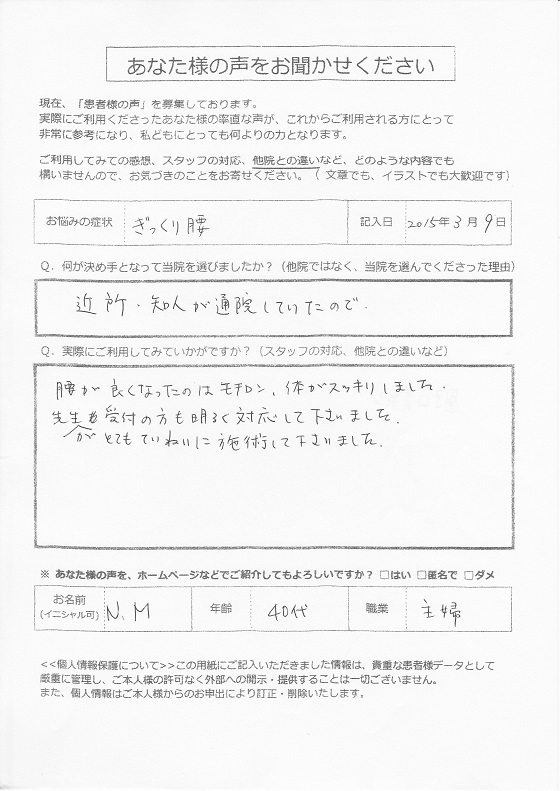 あなた様の声をお聞かせください
現在、「患者様の声」を募集しております。
実際にご利用くださったあなた様の率直な声が、これからご利用される方にとって
非常に参考になり、私どもにとっても何よりの力となります。
ご利用してみての感想、スタッフの対応、他院との違いなど、どのような内容でも
構いませんので、お気づきのことをお寄せください。（文章でも、イラストでも大歓迎です）
お悩みの症状 ぎっくり腰 記入日 2015年3月9日
Q．何が決め手となって当院を選びましたか？（他院ではなく、当院を選んでくださった理由）
近所・知人が通院していたので．
Q．実際にご利用してみていかがですか？（スタッフの対応、他院との違いなど）
腰が良くなったのはモチロン、体がスッキリしました．
先生も受付の方も明るく対応して下さいました．
がとてもていねいに施術して下さいました．
※ あなた様の声を、ホームページなどでご紹介してもよろしいですか？ □はい □匿名で □ダメ
お名前
(イニシャル可) N、M 年齢 40代 職業 主婦
<<個人情報保護について>>この用紙にご記入いただきました情報は、貴重な患者様データとして
厳重に管理し、ご本人様の許可なく外部への開示・提供することは一切ございません。
また、個人情報はご本人様からのお申出により訂正・削除いたします。